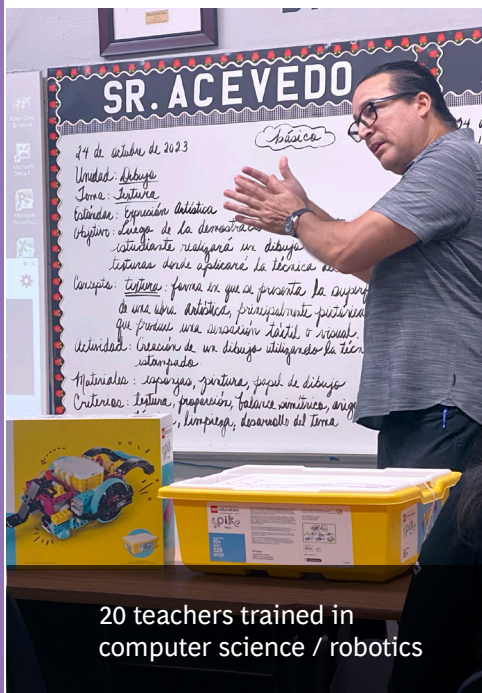 SR. ACEVEDO
24 de octubre de 2023
básica
Unidad: Dibujo
Tema: Textura
Estándar: Expresión Artística
Objetivo: Luego de la demostrac
estudiante realizará un dibujo
texturas donde aplicará la técnica de
Concepto: textura: forma en que se presenta la superf
de una obra artística, principalmente
que produce una sensación táctil o visual.
Actividad: Creación de un dibujo utilizando la técn
estampado
Materiales: esponjas, pintura, papel de dibujo
Criterios: textura, proporción, balance simétrico,
, limpieza, desarrollo del tema
education
spike
20 teachers trained in
computer science / robotics